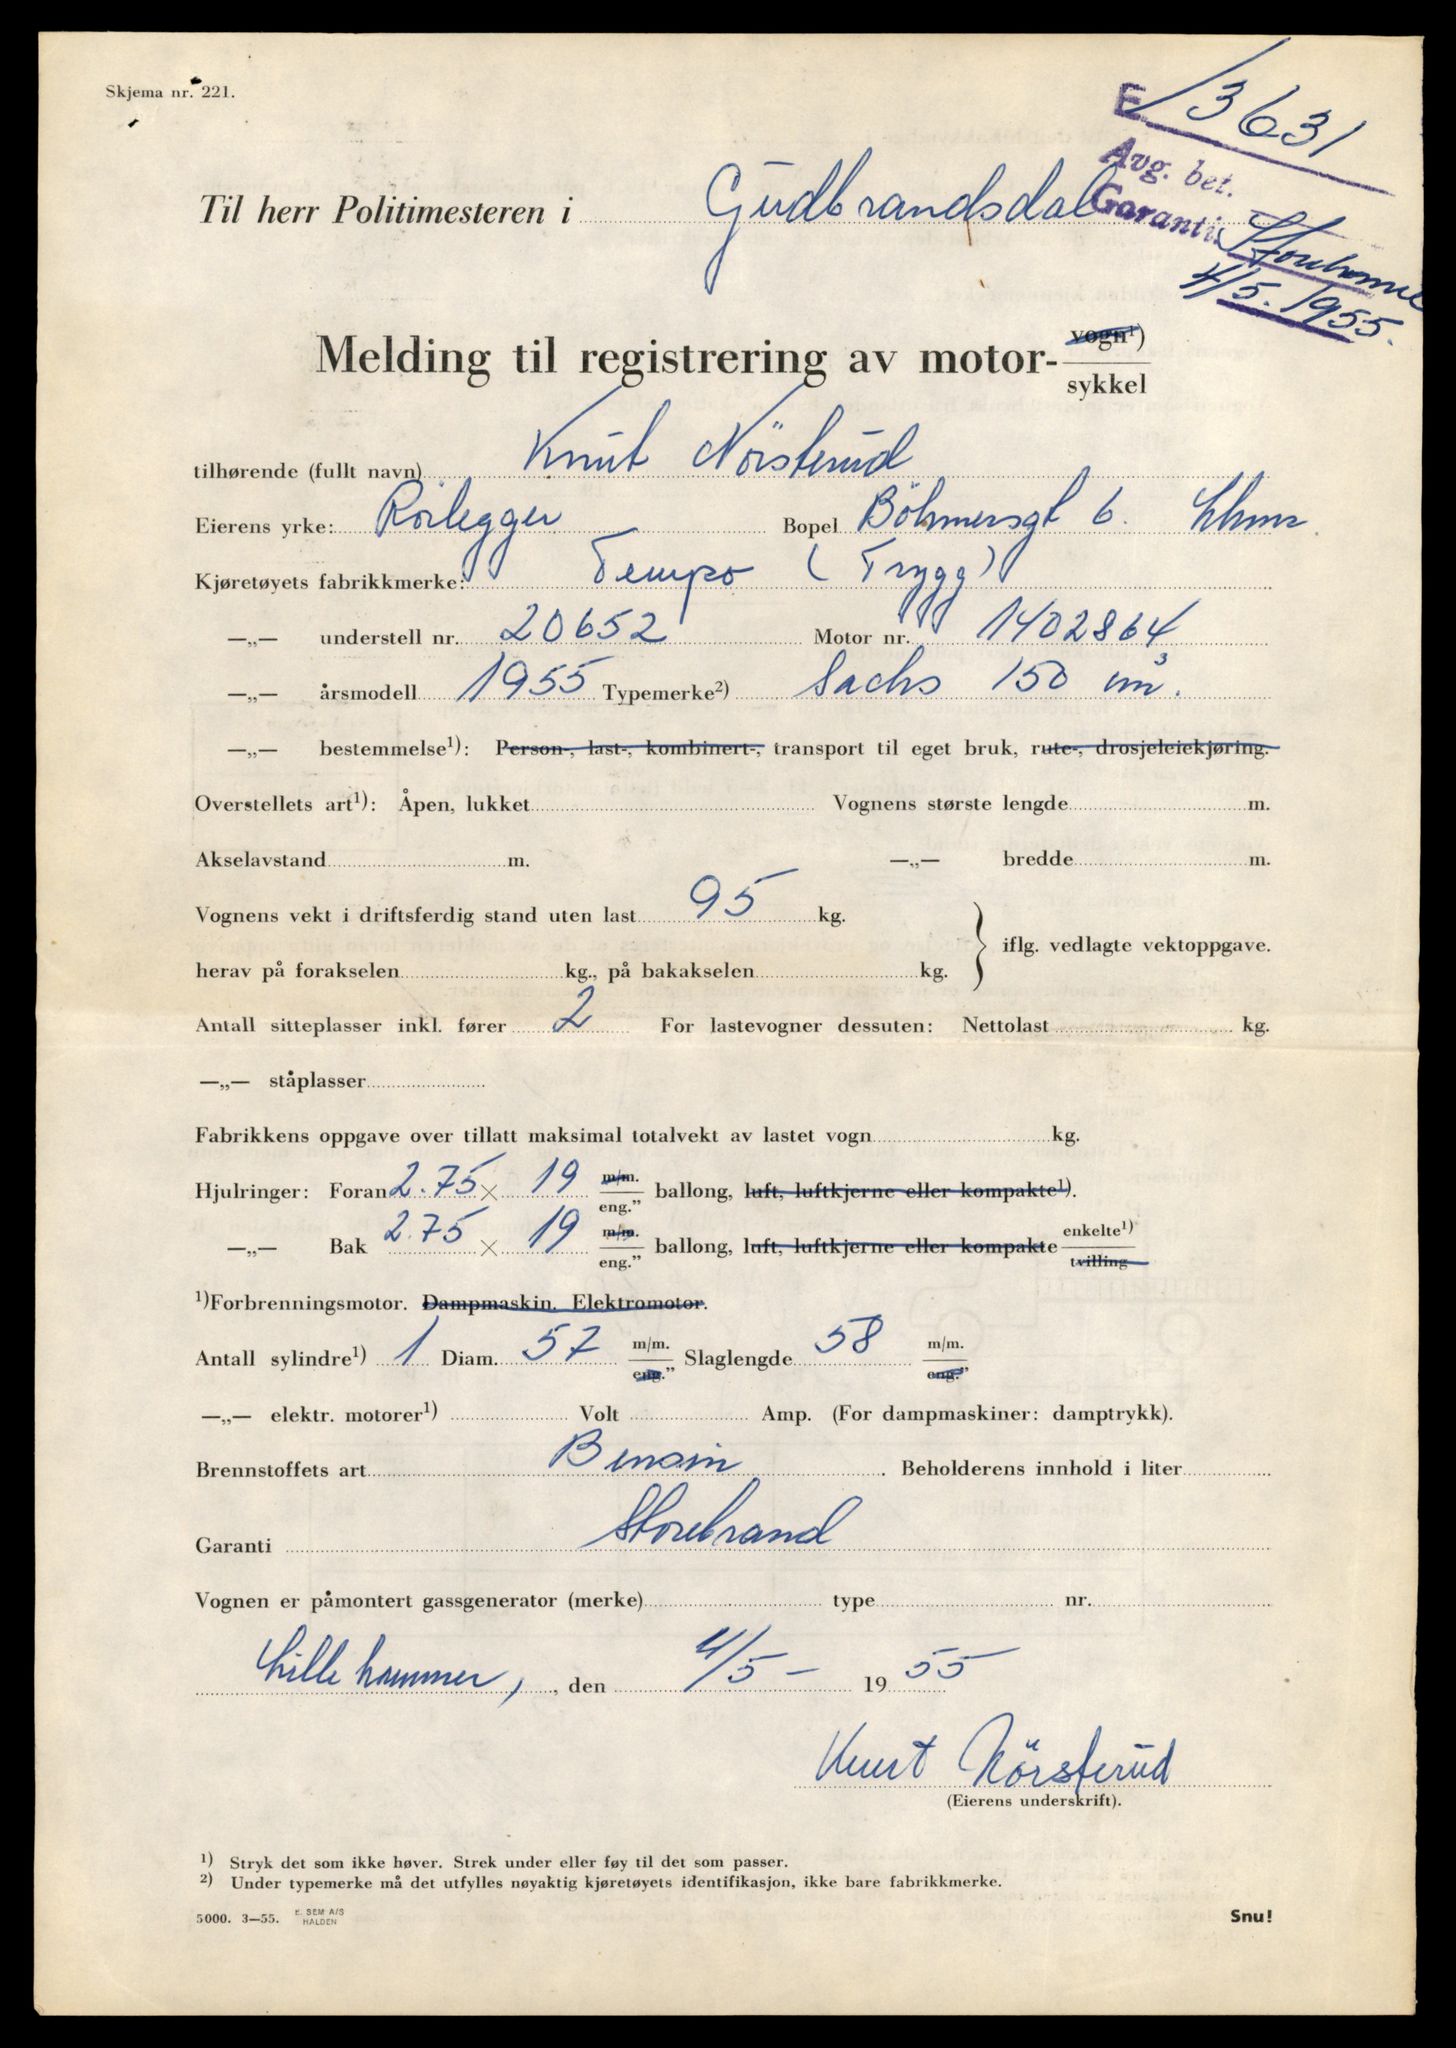 Skjema nr. 221.
E. 13631
Avg. bet.
Garanti Storebrand
4/5. 1955.
Til herr Politimesteren i Gudbrandsdal
Melding til registrering av motor- vogn¹)
sykkel
tilhørende (fullt navn) Knut Nörsterud
Eierens yrke: Rörlegger Bopel Böhmersgt 6. Lhmr
Kjøretøyets fabrikkmerke: Tempo (Trygg)
—„— understell nr. 20652 Motor nr. 1402864
—„— årsmodell 1955 Typemerke²) Sachs 150 cm³.
—„— bestemmelse¹): Person-, last-, kombinert-, transport til eget bruk, rute-, drosjeleiekjøring.
Overstellets art¹): Åpen, lukket Vognens største lengde m.
Akselavstand m. —„— bredde m.
Vognens vekt i driftsferdig stand uten last 95 kg.
iflg. vedlagte vektoppgave.
herav på forakselen kg., på bakakselen kg.
Antall sitteplasser inkl. fører 2 For lastevogner dessuten: Nettolast kg.
—„— ståplasser
Fabrikkens oppgave over tillatt maksimal totalvekt av lastet vogn kg.
Hjulringer: Foran 2.75 × 19 m/m. eng.” ballong, luft, luftkjerne eller kompakte¹).
—„— Bak 2.75 × 19 m/m. eng.” ballong, luft, luftkjerne eller kompakte enkelte¹) tvilling
¹)Forbrenningsmotor. Dampmaskin. Elektromotor.
Antall sylindre¹) 1 Diam. 57 m/m. eng.” Slaglengde 58 m/m. eng.”
—„— elektr. motorer¹) Volt Amp. (For dampmaskiner: damptrykk).
Brennstoffets art Bensin Beholderens innhold i liter
Garanti Storebrand
Vognen er påmontert gassgenerator (merke) type nr.
Lillehammer, den 4/5 – 1955
Knut Nörsterud
(Eierens underskrift).
¹) Stryk det som ikke høver. Strek under eller føy til det som passer.
²) Under typemerke må det utfylles nøyaktig kjøretøyets identifikasjon, ikke bare fabrikkmerke.
5000. 3—55. E. SEM A/S
HALDEN
Snu!